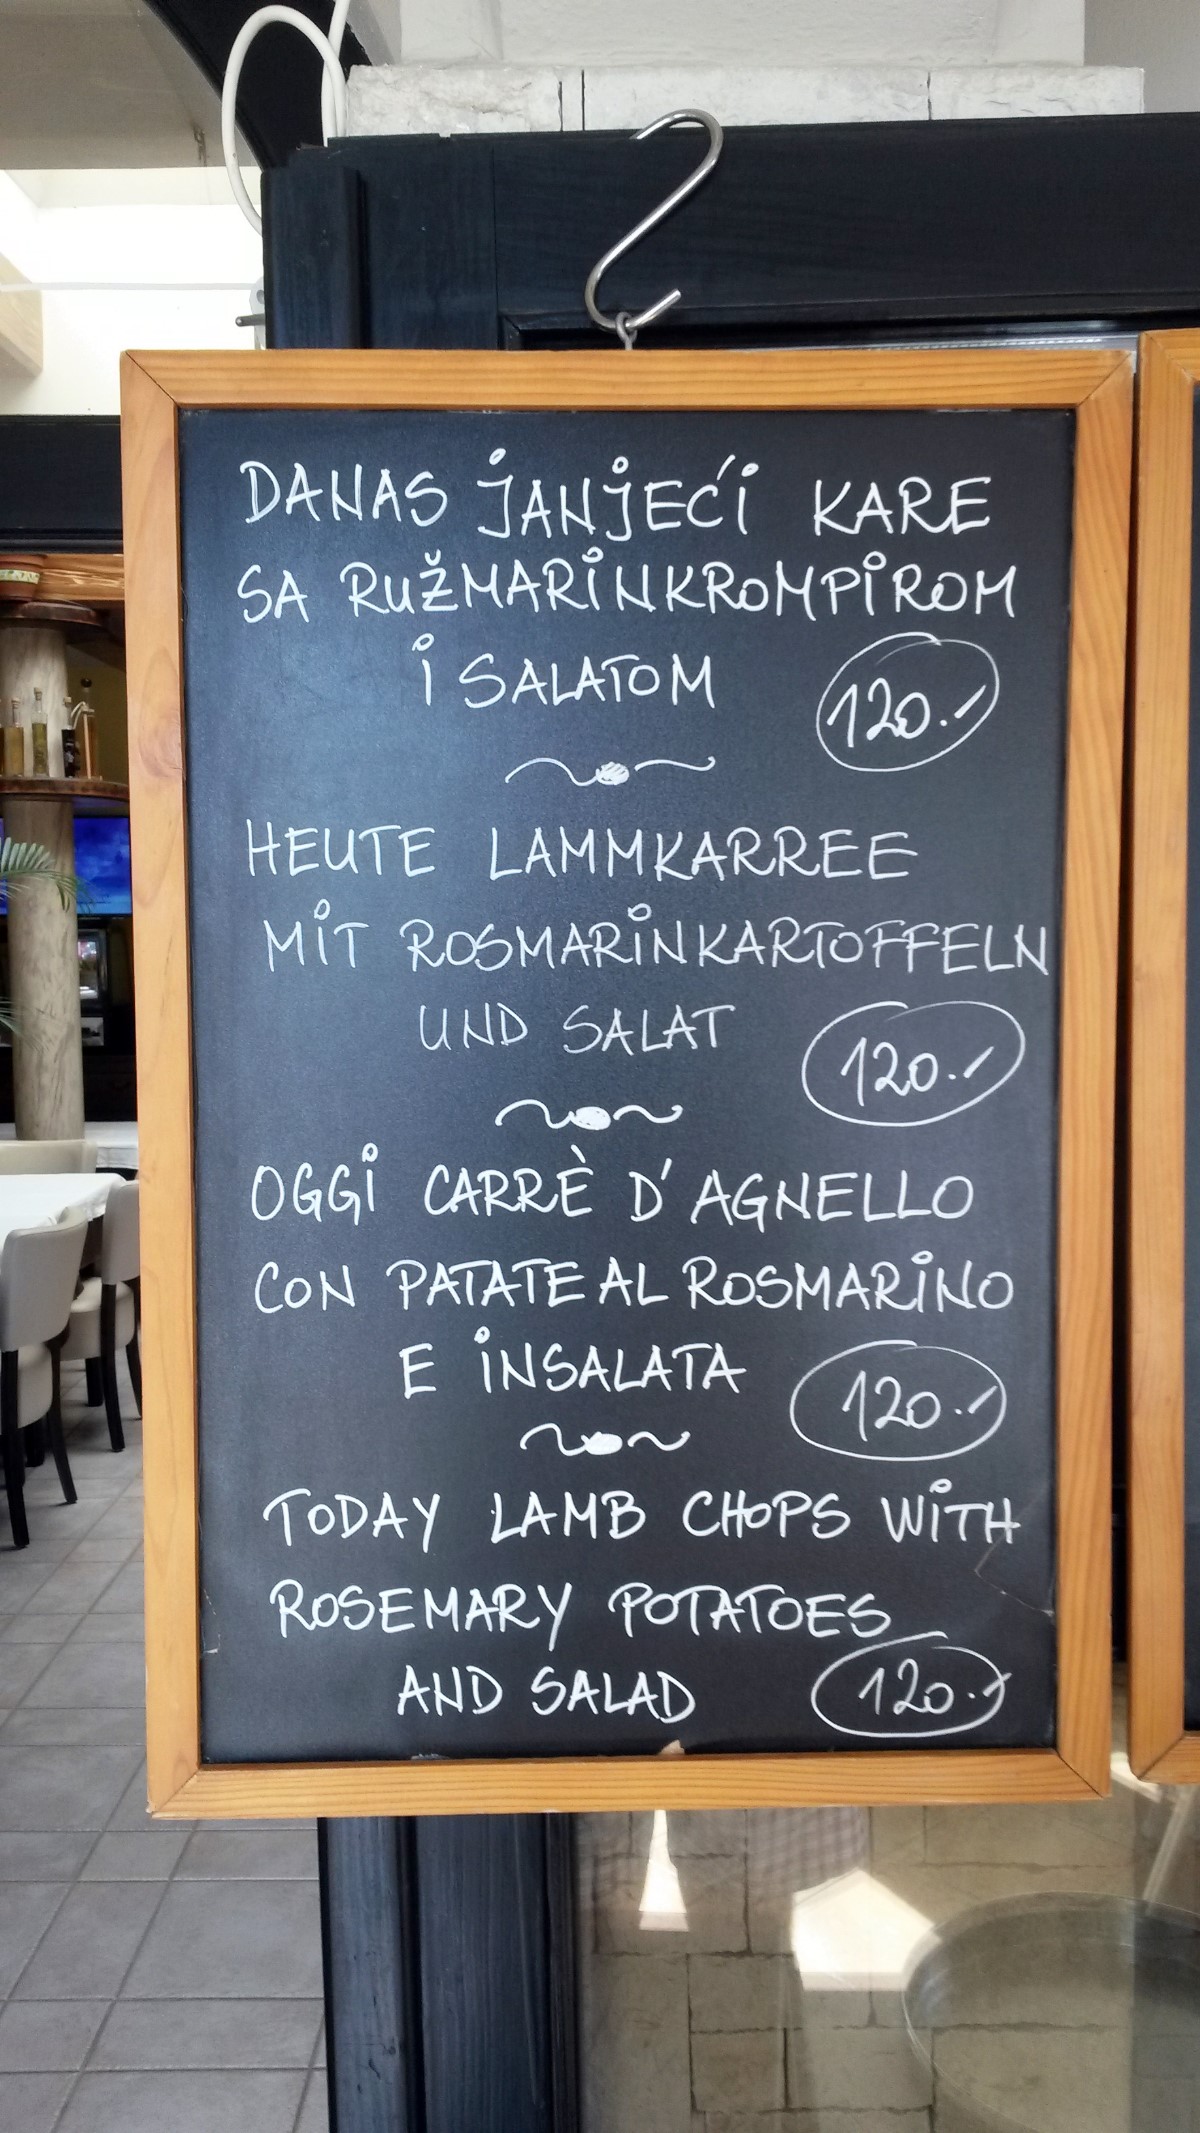 DANAS JANJEĆI KARE
SA RUŽMARINKROMPIROM
I SALATOM
120.-
HEUTE LAMMKARREE
MIT ROSMARINKARTOFFELN
UND SALAT
120.-
OGGI CARRÈ D'AGNELLO
CON PATATE AL ROSMARINO
E INSALATA
120.-
TODAY LAMB CHOPS WITH
ROSEMARY POTATOES
AND SALAD
120.-